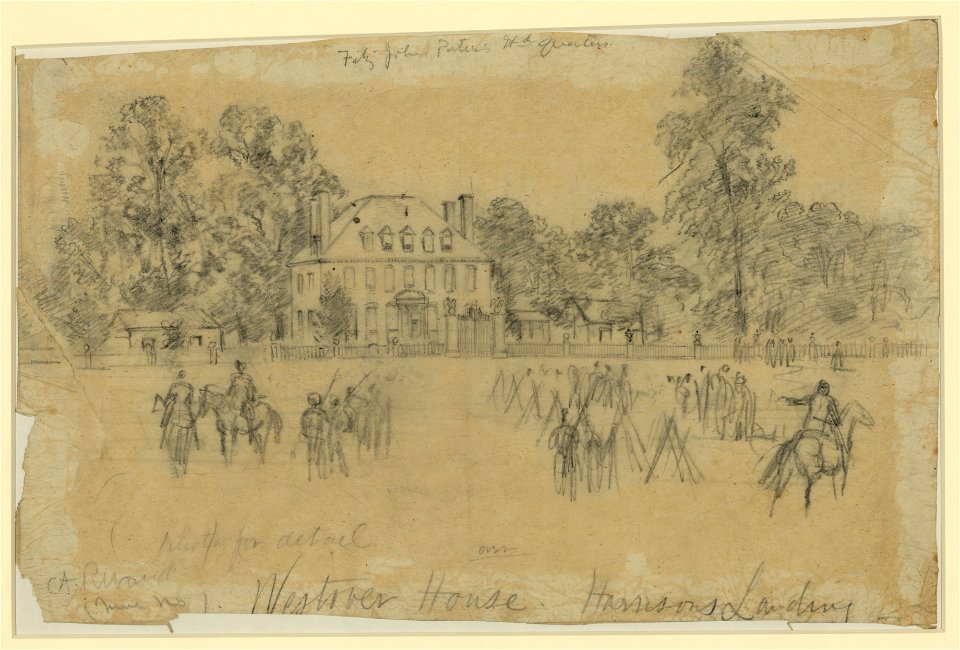 Fitz John Porters Hd quarters
( photo for detail
over
A. R. Waud
Westover House. Harrisons Landing